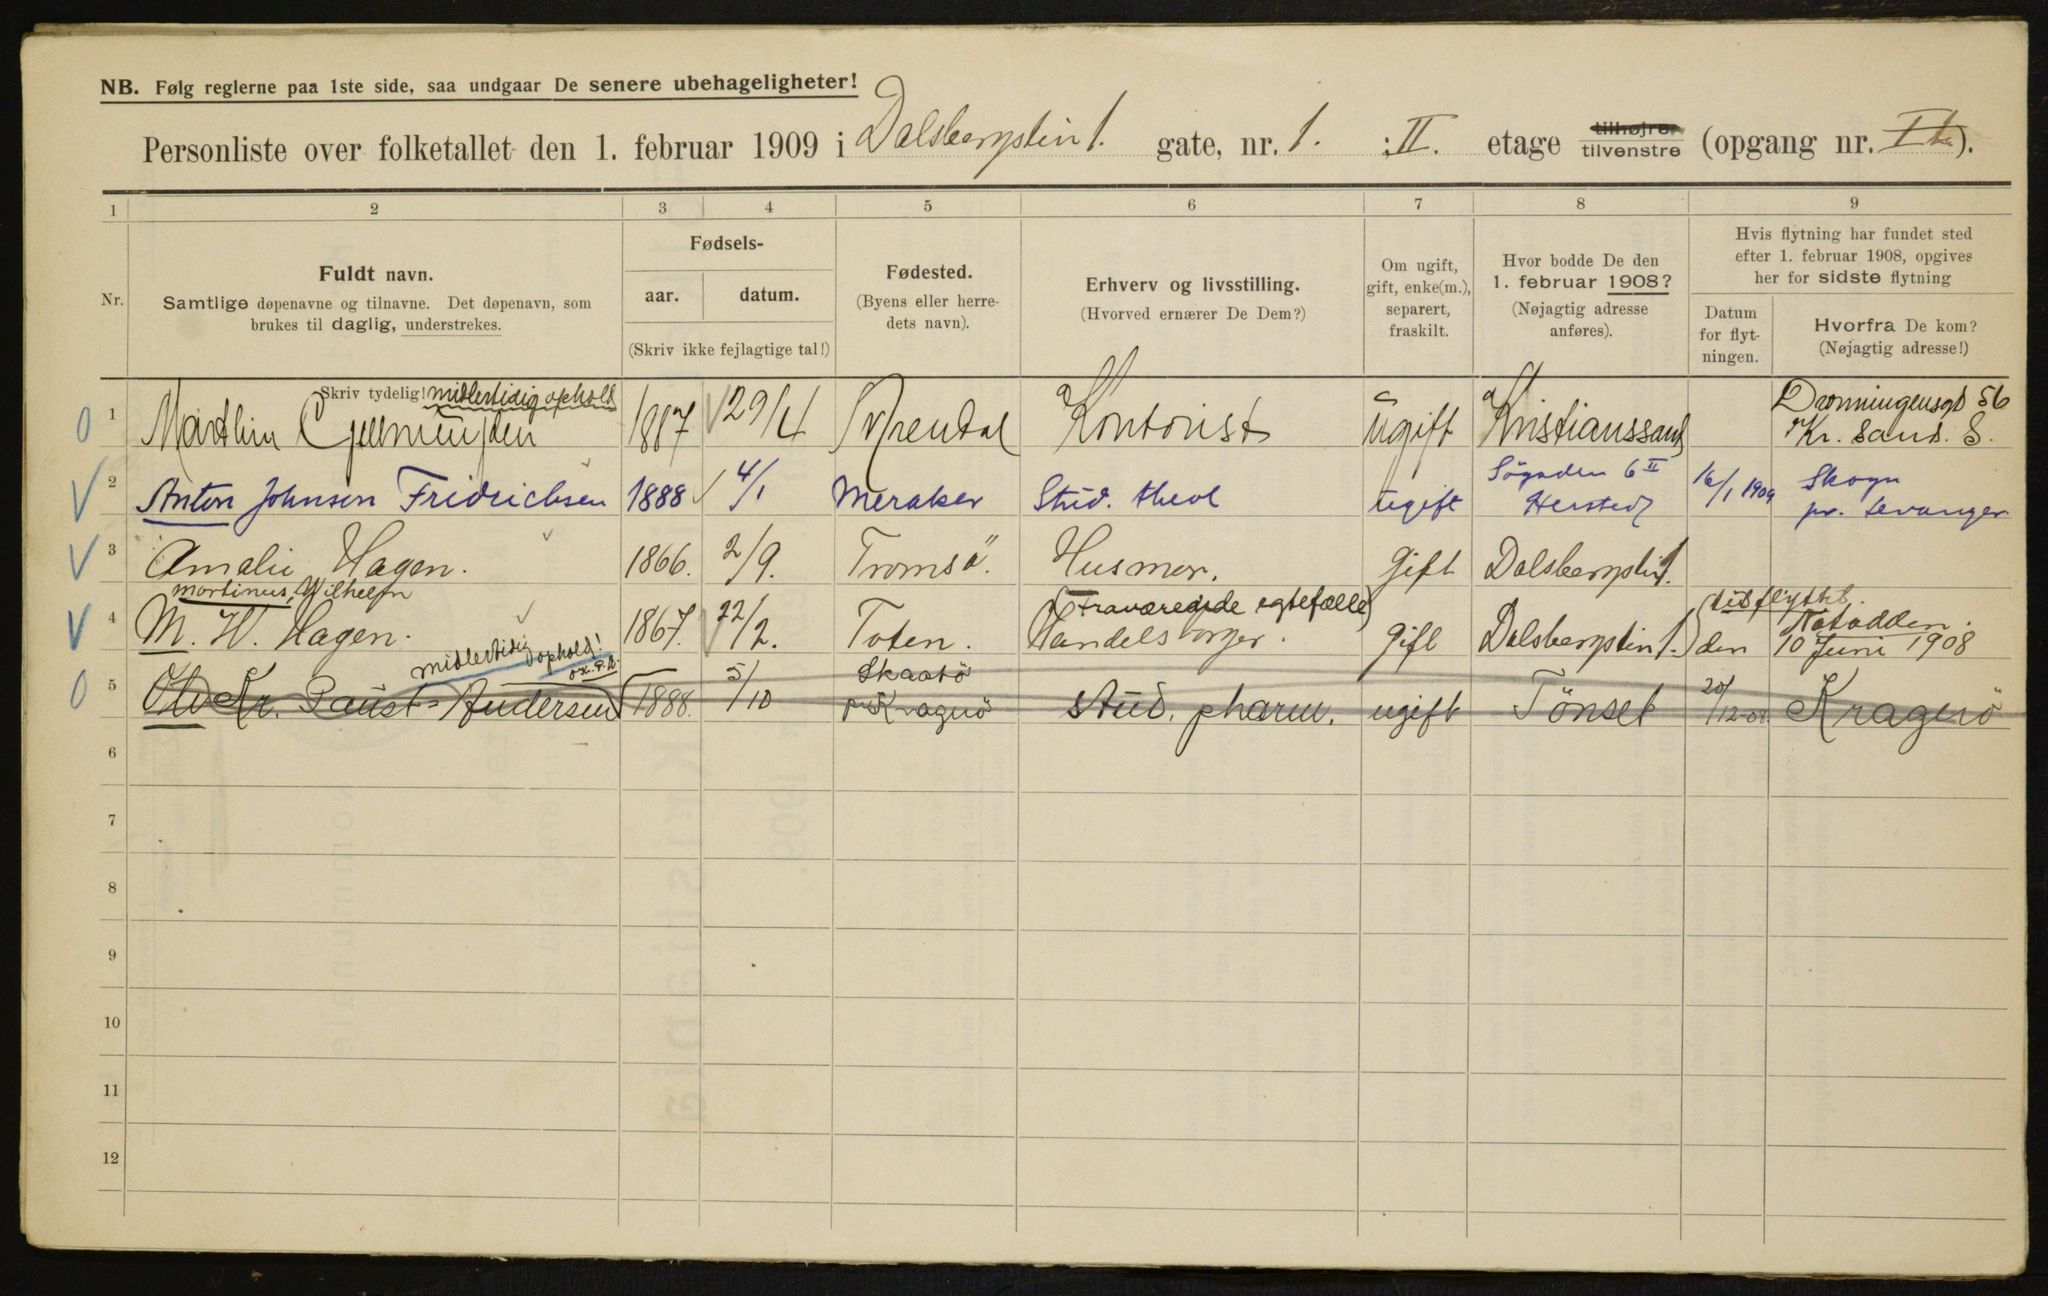 NB. Følg reglerne paa 1ste side, saa undgaar De senere ubehageligheter!
Personliste over folketallet den 1. februar 1909 i Dalsbergstin 1. gate, nr. 1. : II. etage tilhøjre tilvenstre (opgang nr. ).
1 2 3 4 5 6 7 8 9
Nr.
Fuldt navn.
Samtlige døpenavne og tilnavne. Det døpenavn, som
brukes til daglig, understrekes.
Skriv tydelig!
Fødsels-
aar. datum.
(Skriv ikke fejlagtige tal!)
Fødested.
(Byens eller herre-
dets navn).
Erhverv og livsstilling.
(Hvorved ernærer De Dem?)
Om ugift,
gift, enke(m.),
separert,
fraskilt.
Hvor bodde De den
1. februar 1908?
(Nøjagtig adresse
anføres).
Hvis flytning har fundet sted
efter 1. februar 1908, opgives
her for sidste flytning
Datum
for flyt-
ningen.
Hvorfra De kom?
(Nøjagtig adresse!)
midlertidig ophold
0 1 1887 29/4 Kontorist Ugift Kristianssand Dronningensgt 56
Kr. sand. S.
V 2 Anton Johnsen Fridrichsen 1888 4/1 Meraker Stud. theol ugift 6 II 16/1 1909 Skogn
pr. Levanger
V 3 Amalie Hagen. 1866. 2/9. Tromsö. Husmor. Gift Dalsbergstin 1.
Martinus, Wilhelm
V 4 M. W. Hagen. 1867. 22/2. Toten. (Fraværende egtefælle)
Handelsborger. Gift Dalsbergstin 1. utflyttet
den Notodden.
10 Juni 1908
midlertidig ophold!
0 5 Olv Kr. Paust-Andersen 1888. 5/10 Skaatö
pr Kragerö stud. pharm. ugift Tönset 20/12-08. Kragerö
6
7
8
9
10
11
12